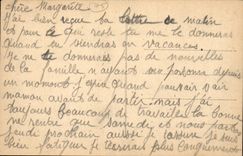 Chère Margarite
J'ai bien reçue ta lettre ce matin
et pour ce qui reste tu me le donneras
quand tu viendras en vacances.
Je ne te donnerais pas de nouvelles
de la famille n'ayant vue personne depuis
un moment que pouvait voir
maman avant de partir. mais j'ai
toujours beaucoup de travailles la bonne
ne rentre que samedi et nous partons
jeudi prochain aussi je
bien fatiguée je t'ecrirais plus longuement